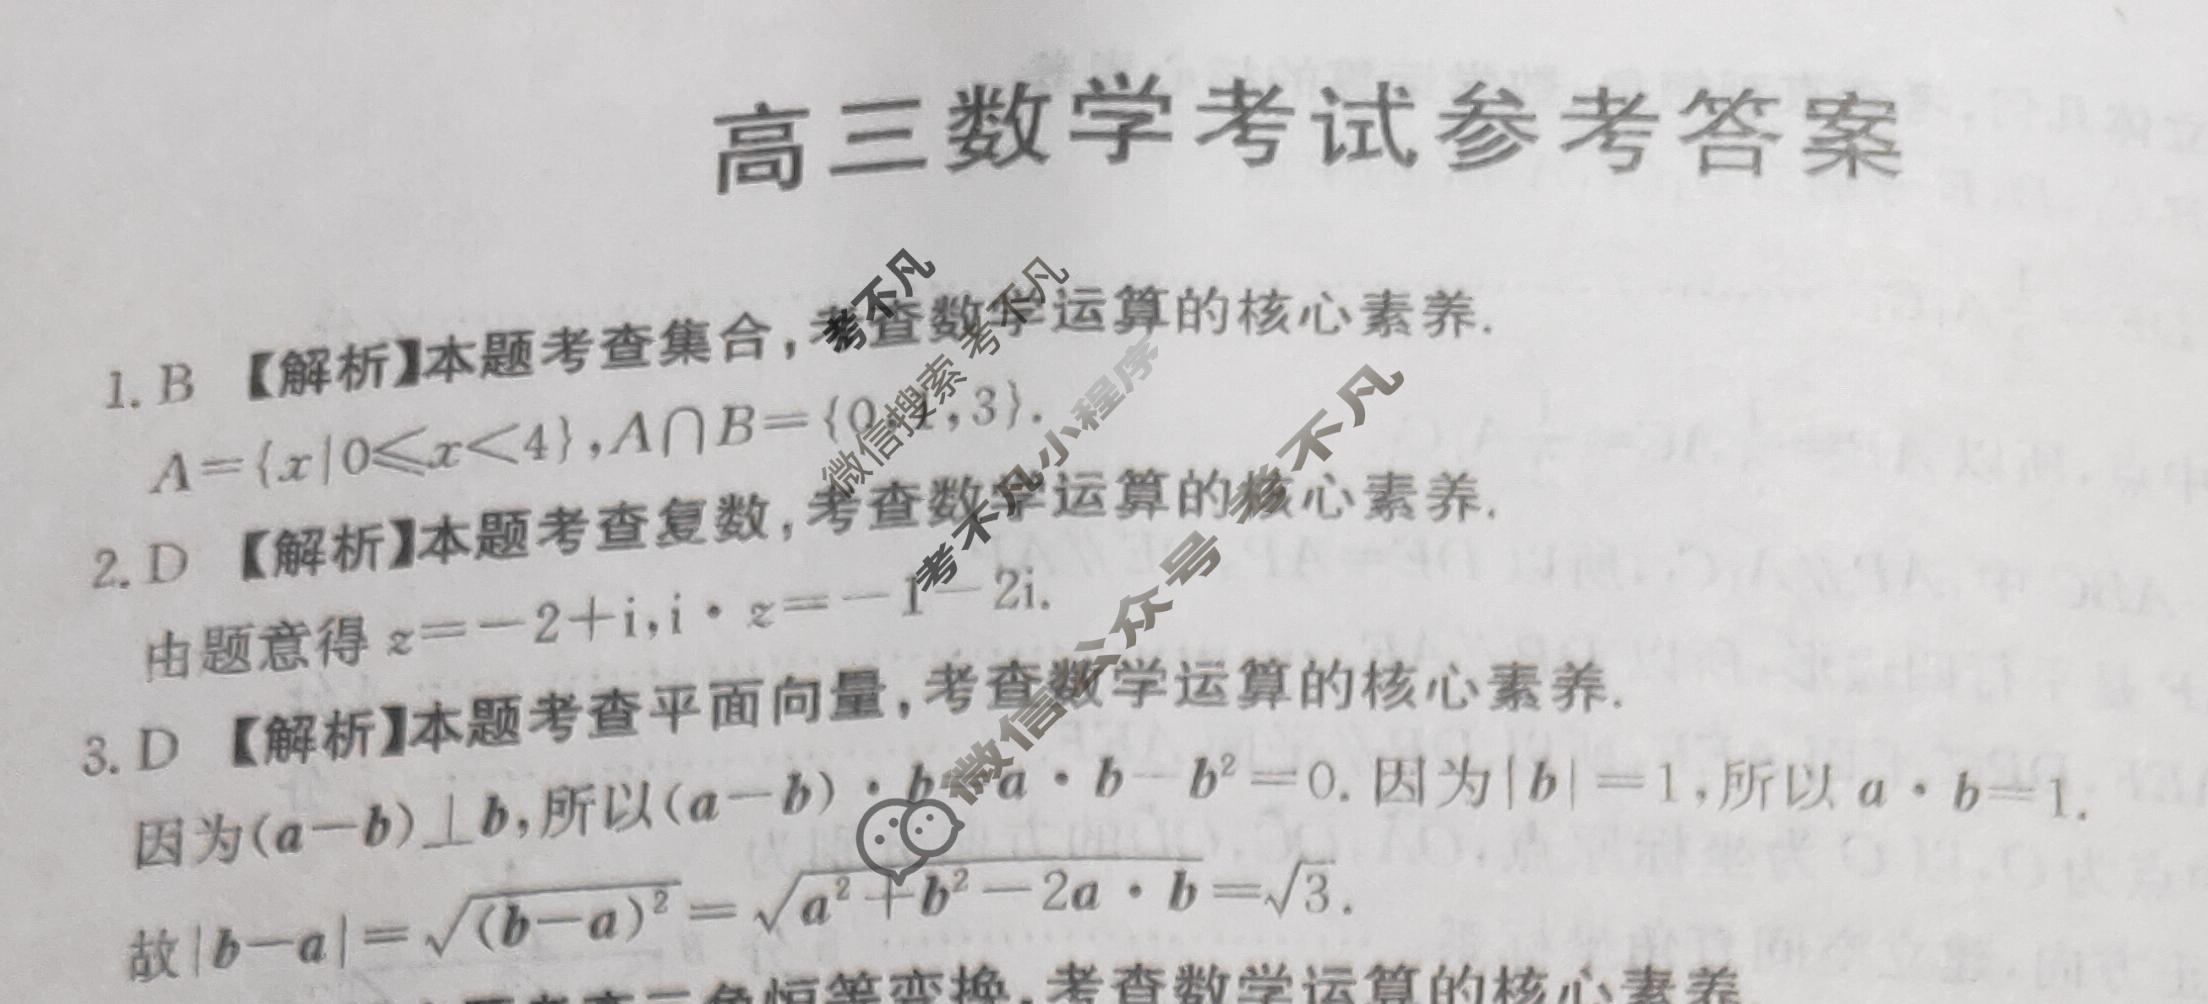 高三数学考试参考答案
1. B 【解析】本题考查集合,考查数学运算的核心素养.
A={x|0≤x<4},A∩B={0,1,3}.
2. D 【解析】本题考查复数,考查数学运算的核心素养.
由题意得 z=-2+i,i·z=-1-2i.
3. D 【解析】本题考查平面向量,考查数学运算的核心素养.
因为(a-b)⊥b,所以(a-b)·b=a·b-b²=0.因为|b|=1,所以 a·b=1.
故|b-a|=√(b-a)²=√a²+b²-2a·b=√3.
三角恒等变换,考查数学运算的核心素养.
考不凡
微信搜索 考不凡
考不凡小程序
微信公众号 考不凡